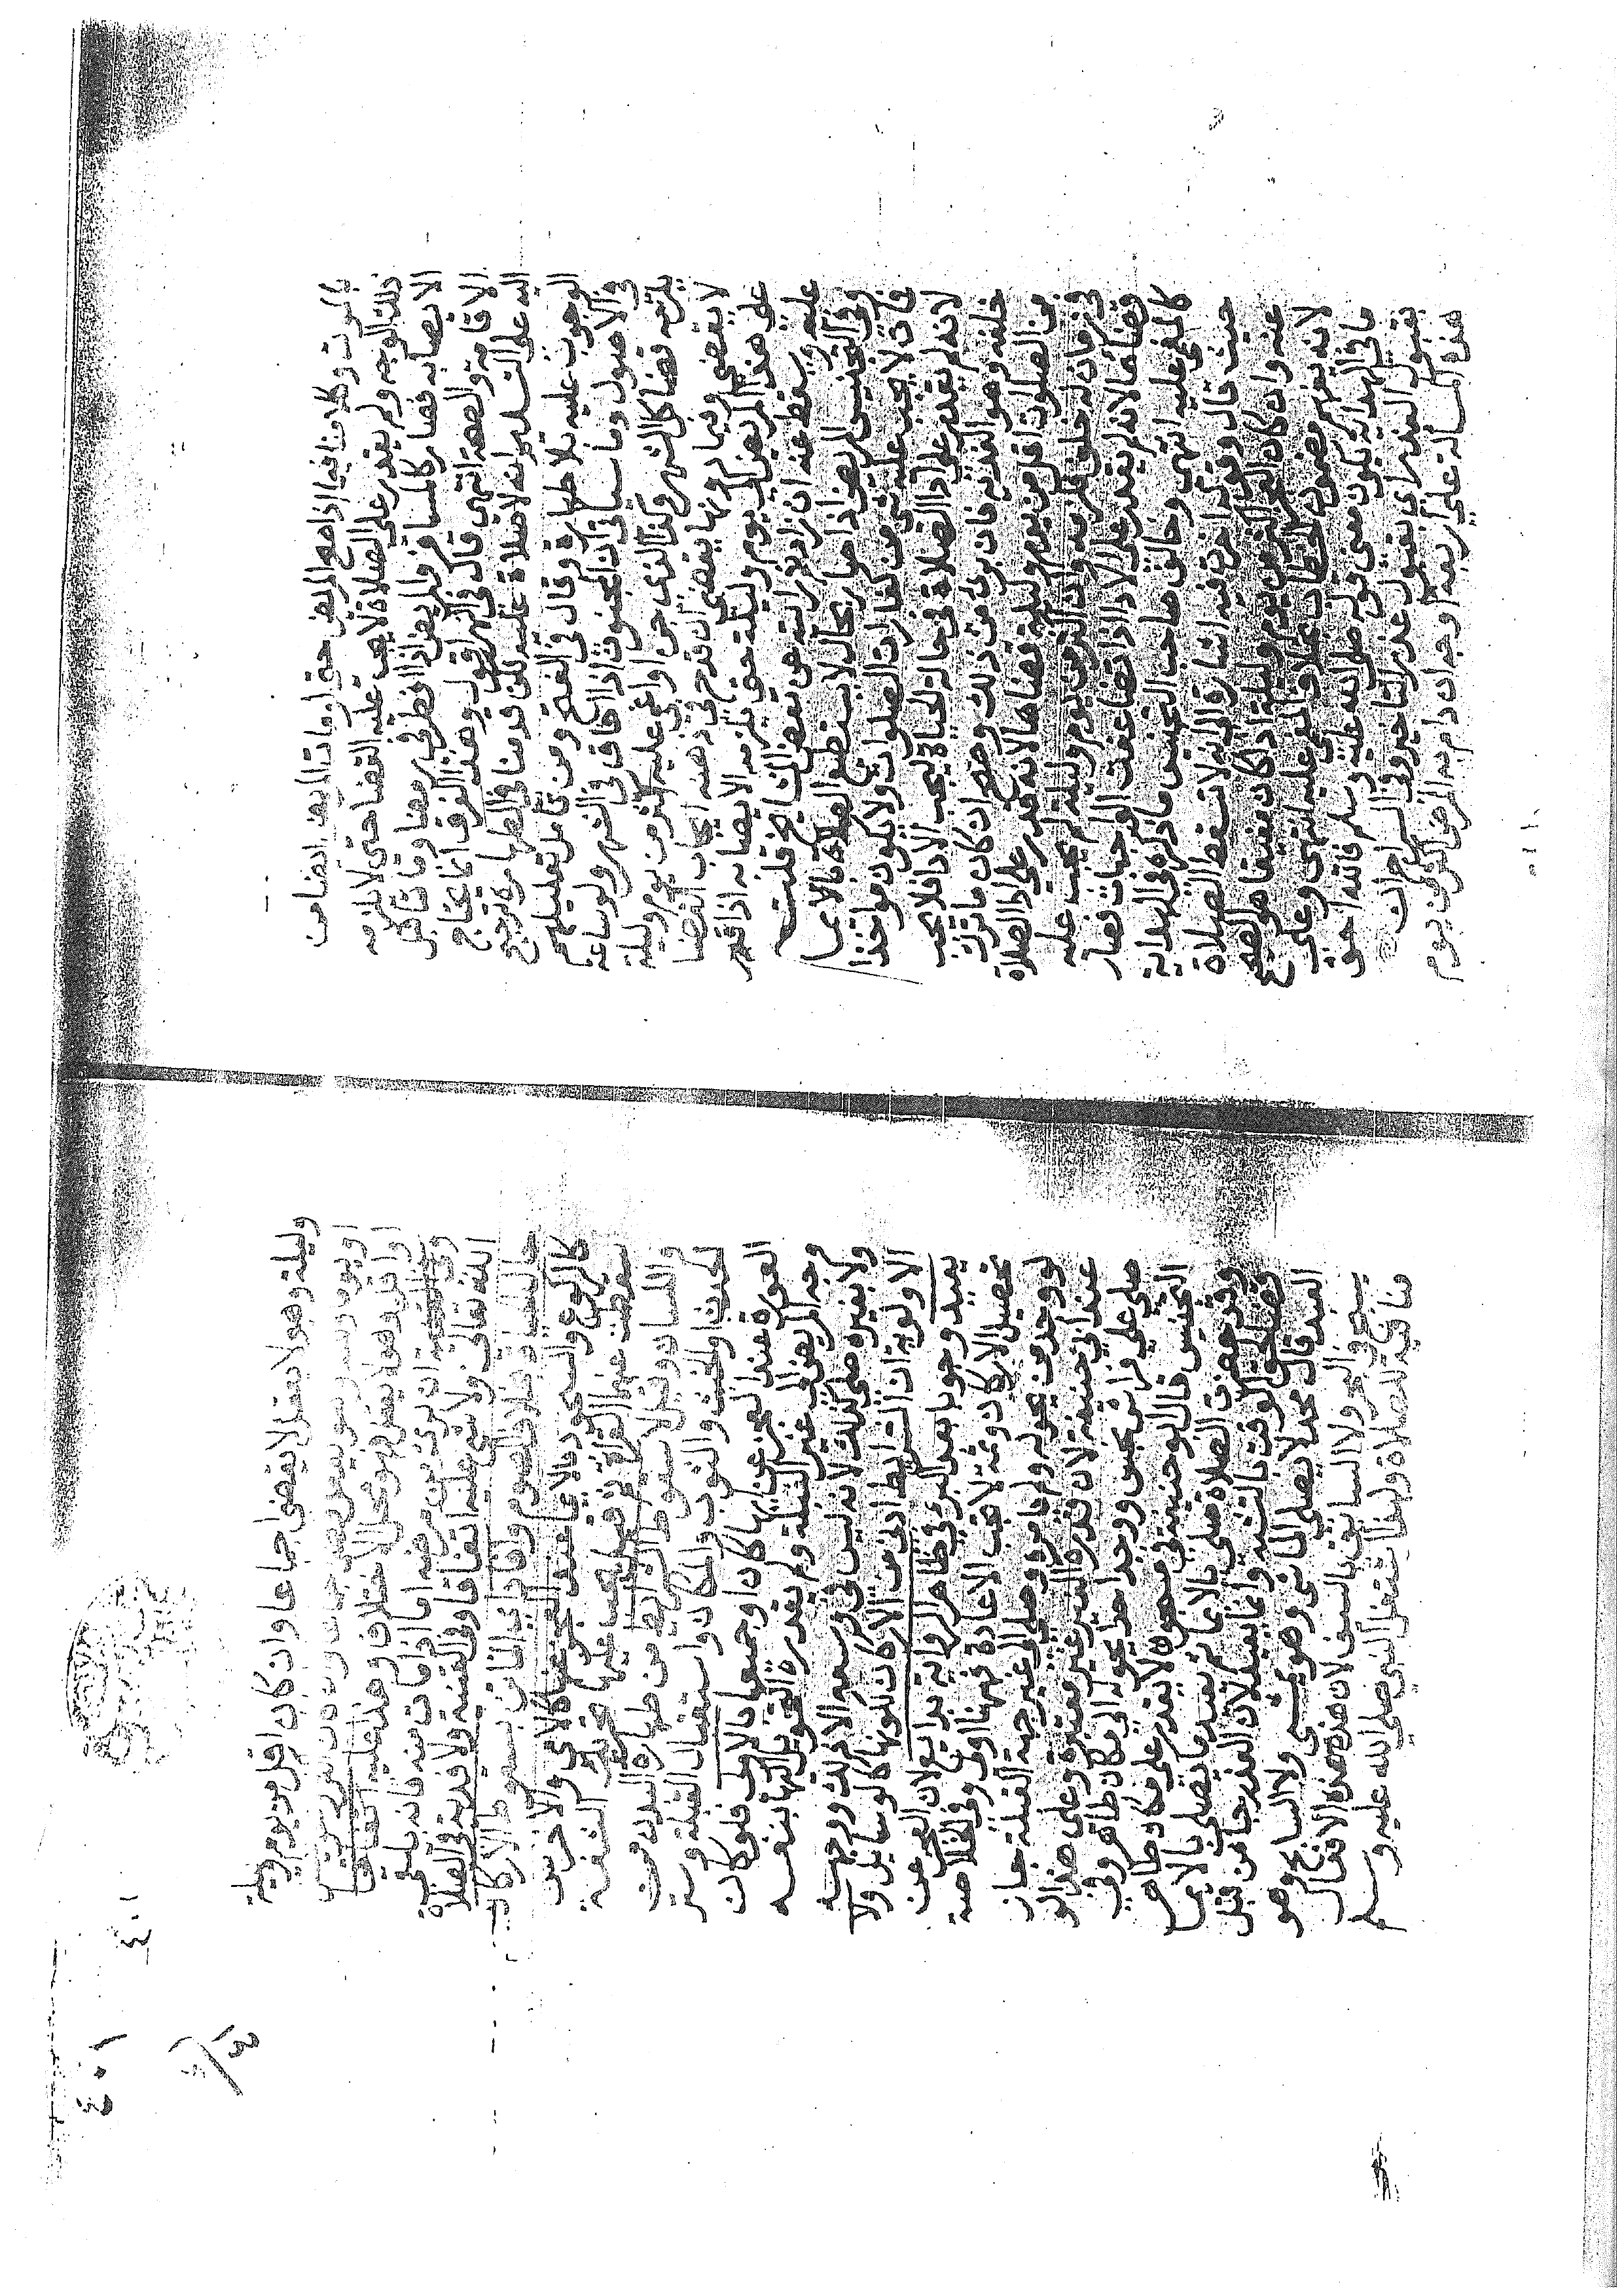 بالموت وكلامنا فيما اذا صح المريض حتى لو مات المريض ايضا من
ذلك الوجه ولم يقدر على الصلاة لا يجب عليه القضا حتى لا يلزمه
الايصا به فصار كالمسافر والمريض اذا افطر في رمضان وماتا قبل
الاقامة والصحة انتهى قال في النهر اقول وهذا الفرق انما يحتاج
اليه على التسليم وانه لا صلاة عليه لكن قدمنا في الطهارة ترجيح
الوجوب عليه بلا طهارة وقال في الفتح ومن تامل تعليلهم
في الاصول وما سياتي ان المجنون اذا افاق في الشهر ولو ساعة
يلزمه قضا كل الشهر وكذا الذي جن او اغمي عليه اكثر من يوم وليلة
لا يقضي وفيما دونها يقضي ان قدح في ذهنه ايجاب القضا
على هذا المريض الى يوم وليلة حتى يلزمه الايصا به اذا قدر
عليه ويسقط عنه ان زاد ثم رايته عن بعض المشايخ قلت
وفي التجنيس المريض اذا صار بحال لا يستطيع الصلاة بالايما
فمات لا يجب عليه شي من كفارات الصلوات ولا يكون مواخذا
لانه لم يقدر على ادا الصلاة في حالة الحياة ليجب الادا فلا يجب
خلفه وهو الفدية فان برئ من ذلك وصح ان كان ما ترك
من الصلوات اقل من يوم وليلة قضاها لانه قدر على ادا الصلاة
في زمان له فلزمه وان اكثر من يوم وليلة لم يجب عليه
قضاها لانه لم يقدر على الادا اذا تضاعفت الواجبات فصار
كالمغمى عليه انتهى وخالف صاحب التجنيس ما ذكره في الهداية
حيث قال وقوله اخرت فيه اشارة الى انه لا تسقط الصلاة
عنه وان كان العجز اكثر من يوم وليلة اذا كان مفيقا هو الصحيح
لانه يفهم مضمون الخطاب بخلاف المغمى عليه انتهى وعلى
ما في الهداية يكون معنى قوله صلى الله عليه وسلم فالله احق
بقبول العذر اي بقبول عذر التاخير وفي السراج ان
هذه المسألة على اربعة اوجه ان دام به المرض اكثر من يوم
٤٠١
وليلة وهو لا يعقل لا يقضي اجماعا وان كان اقل من يوم وليلة
او يوم
واقل وهو لا يعقل فهو محل الاختلاف
ان برئ من مرضه اما اذا مات منه فانه يلقى
الله تعالى ولا شي عليه اتفاقا وفي القنية ولا فدية في الصلاة
حالة الحياة بخلاف الصوم وافاد الثاني بسقوط الاركان
كالركوع والسجود بالايما عند العجز عنها كالامي والاخرس
سقطت عنهما القراة
والفساد ونحو ذلك سقوط الشرايط من طهارة البدن من
الحدث والخبث والثوب والمكان واستقبال القبلة وستر
العورة عند العجز عن ايها كان او جميعها بالاولى فلو كان
وجه المريض الى غير القبلة ولم يقدر على التحويل اليها بنفسه
ولا بغيره صلى كذلك لانه ليس في وسعه الا ذلك ووجه
الاولوية ان الشرايط ادنى من الاركان
يعيد وجوبا بعد البرئ في ظاهر الرواية
تحصيل الاركان وثمة لا تجب الاعادة فهنا اولى وفي الخلاصة
لو وجد من يحوله ولم يامره وصلى الى غير جهة القبلة جاز
عند ابي حنيفة لان قدرة الغير غير معتبرة وعلى هذا لو
صلى على فراش نجس ووجد احدا يحوله الى مكان طاهر وفي
التجنيس قال ابو حنيفة في متوجه لا يقدر على مكان طاهر
وقد حضرت الصلاة صلى بالايما ثم يعيد ما يصلي بالايما
قضا لحق الوقت بالتشبه وانما يعيد لان العذر جا من قبل
العبد قال محمد لا يصلي الماشي وهو يمشي ولا السابح وهو
يسبح في البحر ولا السايف بالسيف لان هذه الافعال
منافية للصلاة ولهذا شغل النبي صلى الله عليه وسلم